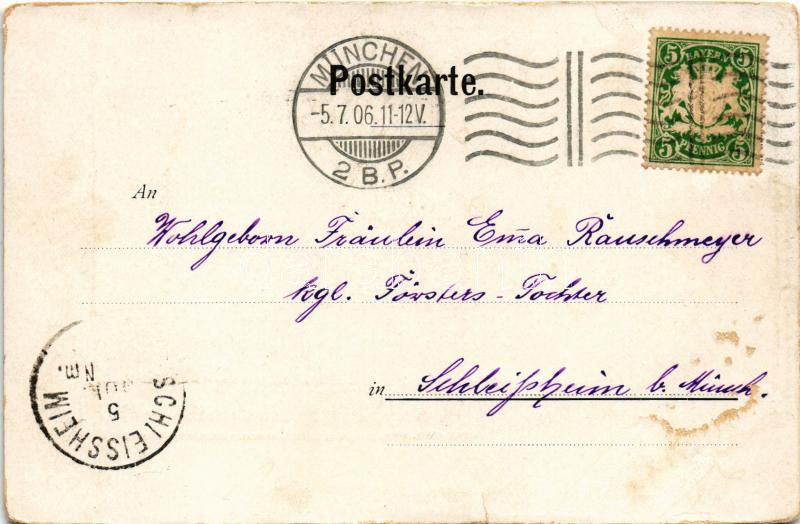 MÜNCHEN
Postkarte.
-5.7.06.11-12V.
2 B.P.
5 BAYERN 5
5 PFENNIG 5
An
Wohlgeborn Fräulein Em̅a Räuschmeyer
kgl. Försters-Tochter
in Schleißheim b. Münch.
SCHLEISSHEIM
5
JUL
Nm.